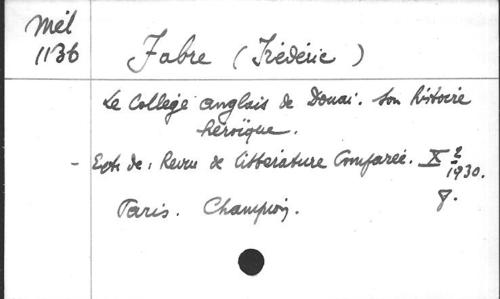 Mél
1136
Fabre (Frédéric)
Le Collège anglais de Douai. Son histoire
héroïque.
- Extr. de : Revue de littérature Comparée. X 2
1930.
Paris. Champion. 8.